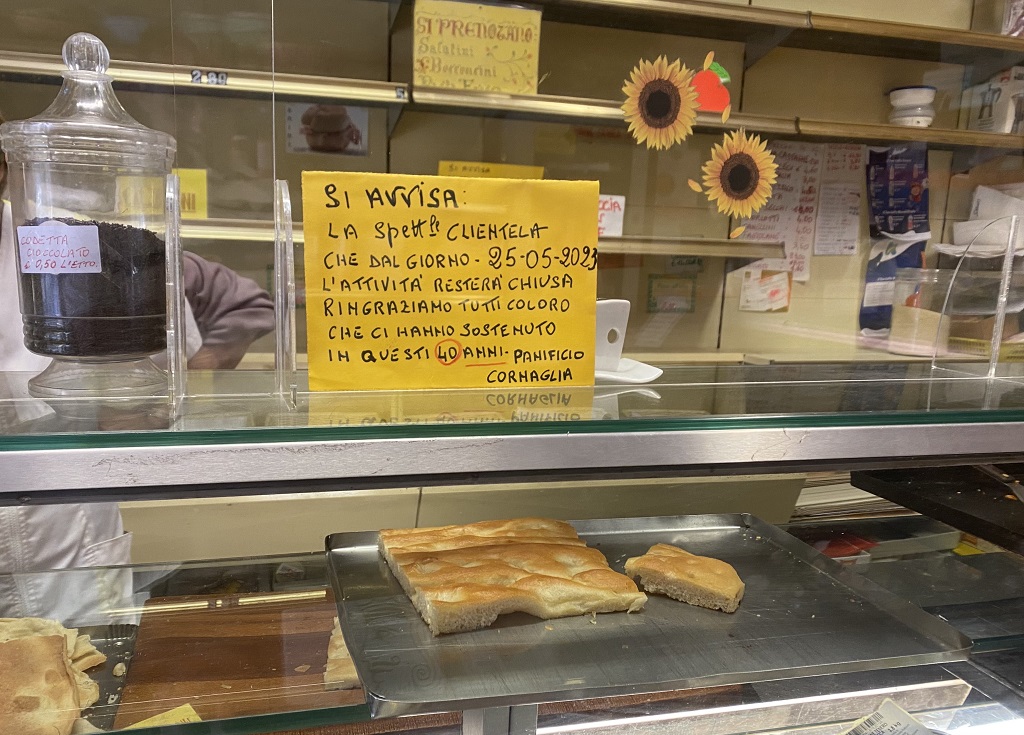 SI PRENOTANO
Salatini
Bocconcini
2.80
SI AVVISA
SI AVVISA:
LA Spett.le CLIENTELA
CHE DAL GIORNO - 25-05-2023
L'ATTIVITÀ RESTERÀ CHIUSA
RINGRAZIAMO TUTTI COLORO
CHE CI HANNO SOSTENUTO
IN QUESTI 40 ANNI - PANIFICIO
CORNAGLIA
CODETTA
CIOCCOLATO
€ 0,50 L'ETTO